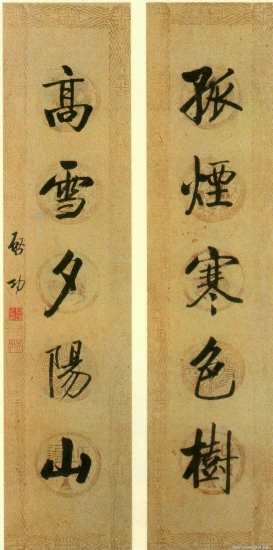 孤煙寒色樹
高雪夕陽山
啟功